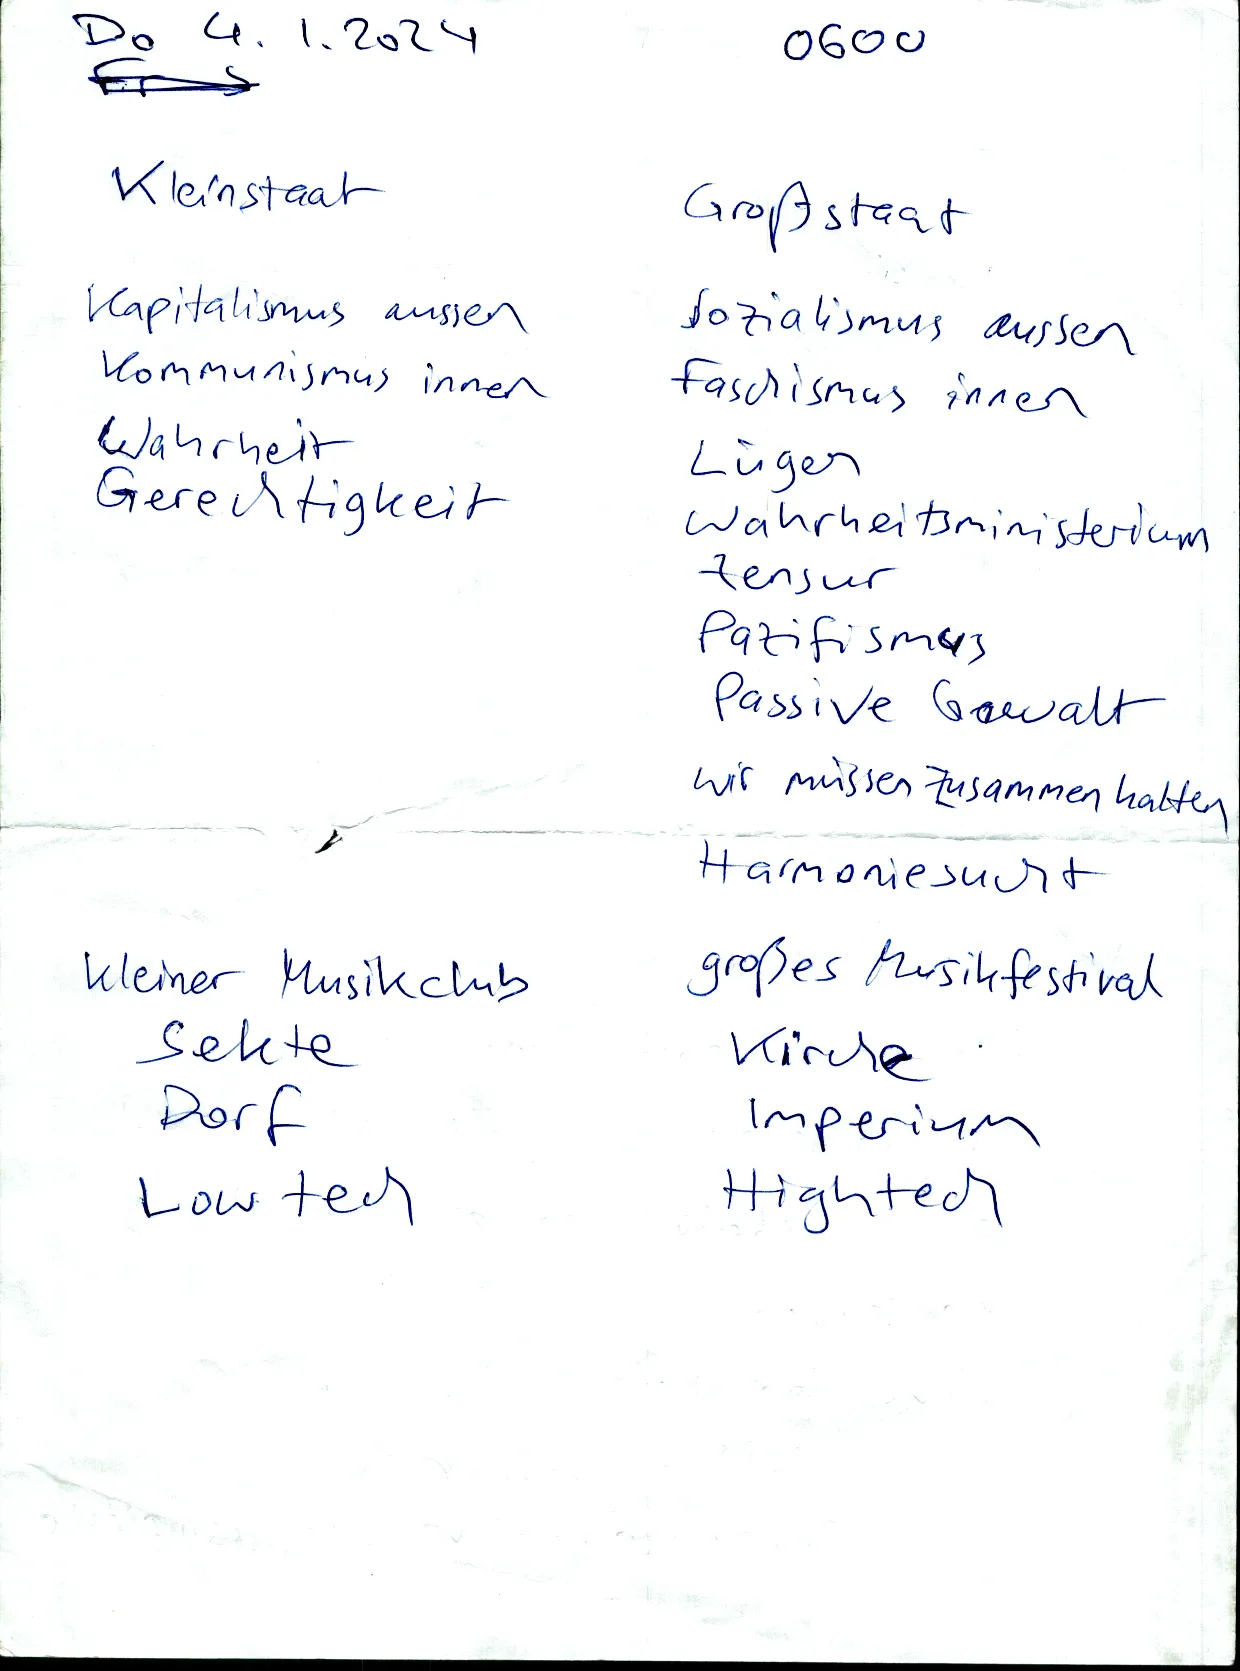 Do 4.1.2024 0600
Kleinstaat
Großstaat
Kapitalismus aussen
Sozialismus aussen
Kommunismus innen
Faschismus innen
Wahrheit
Lügen
Gerechtigkeit
Wahrheitsministerium
Zensur
Pazifismus
Passive Gewalt
wir müssen zusammenhalten
Harmoniesucht
kleiner Musikclub
großes Musikfestival
Sekte
Kirche
Dorf
Imperium
Low tech
Hightech